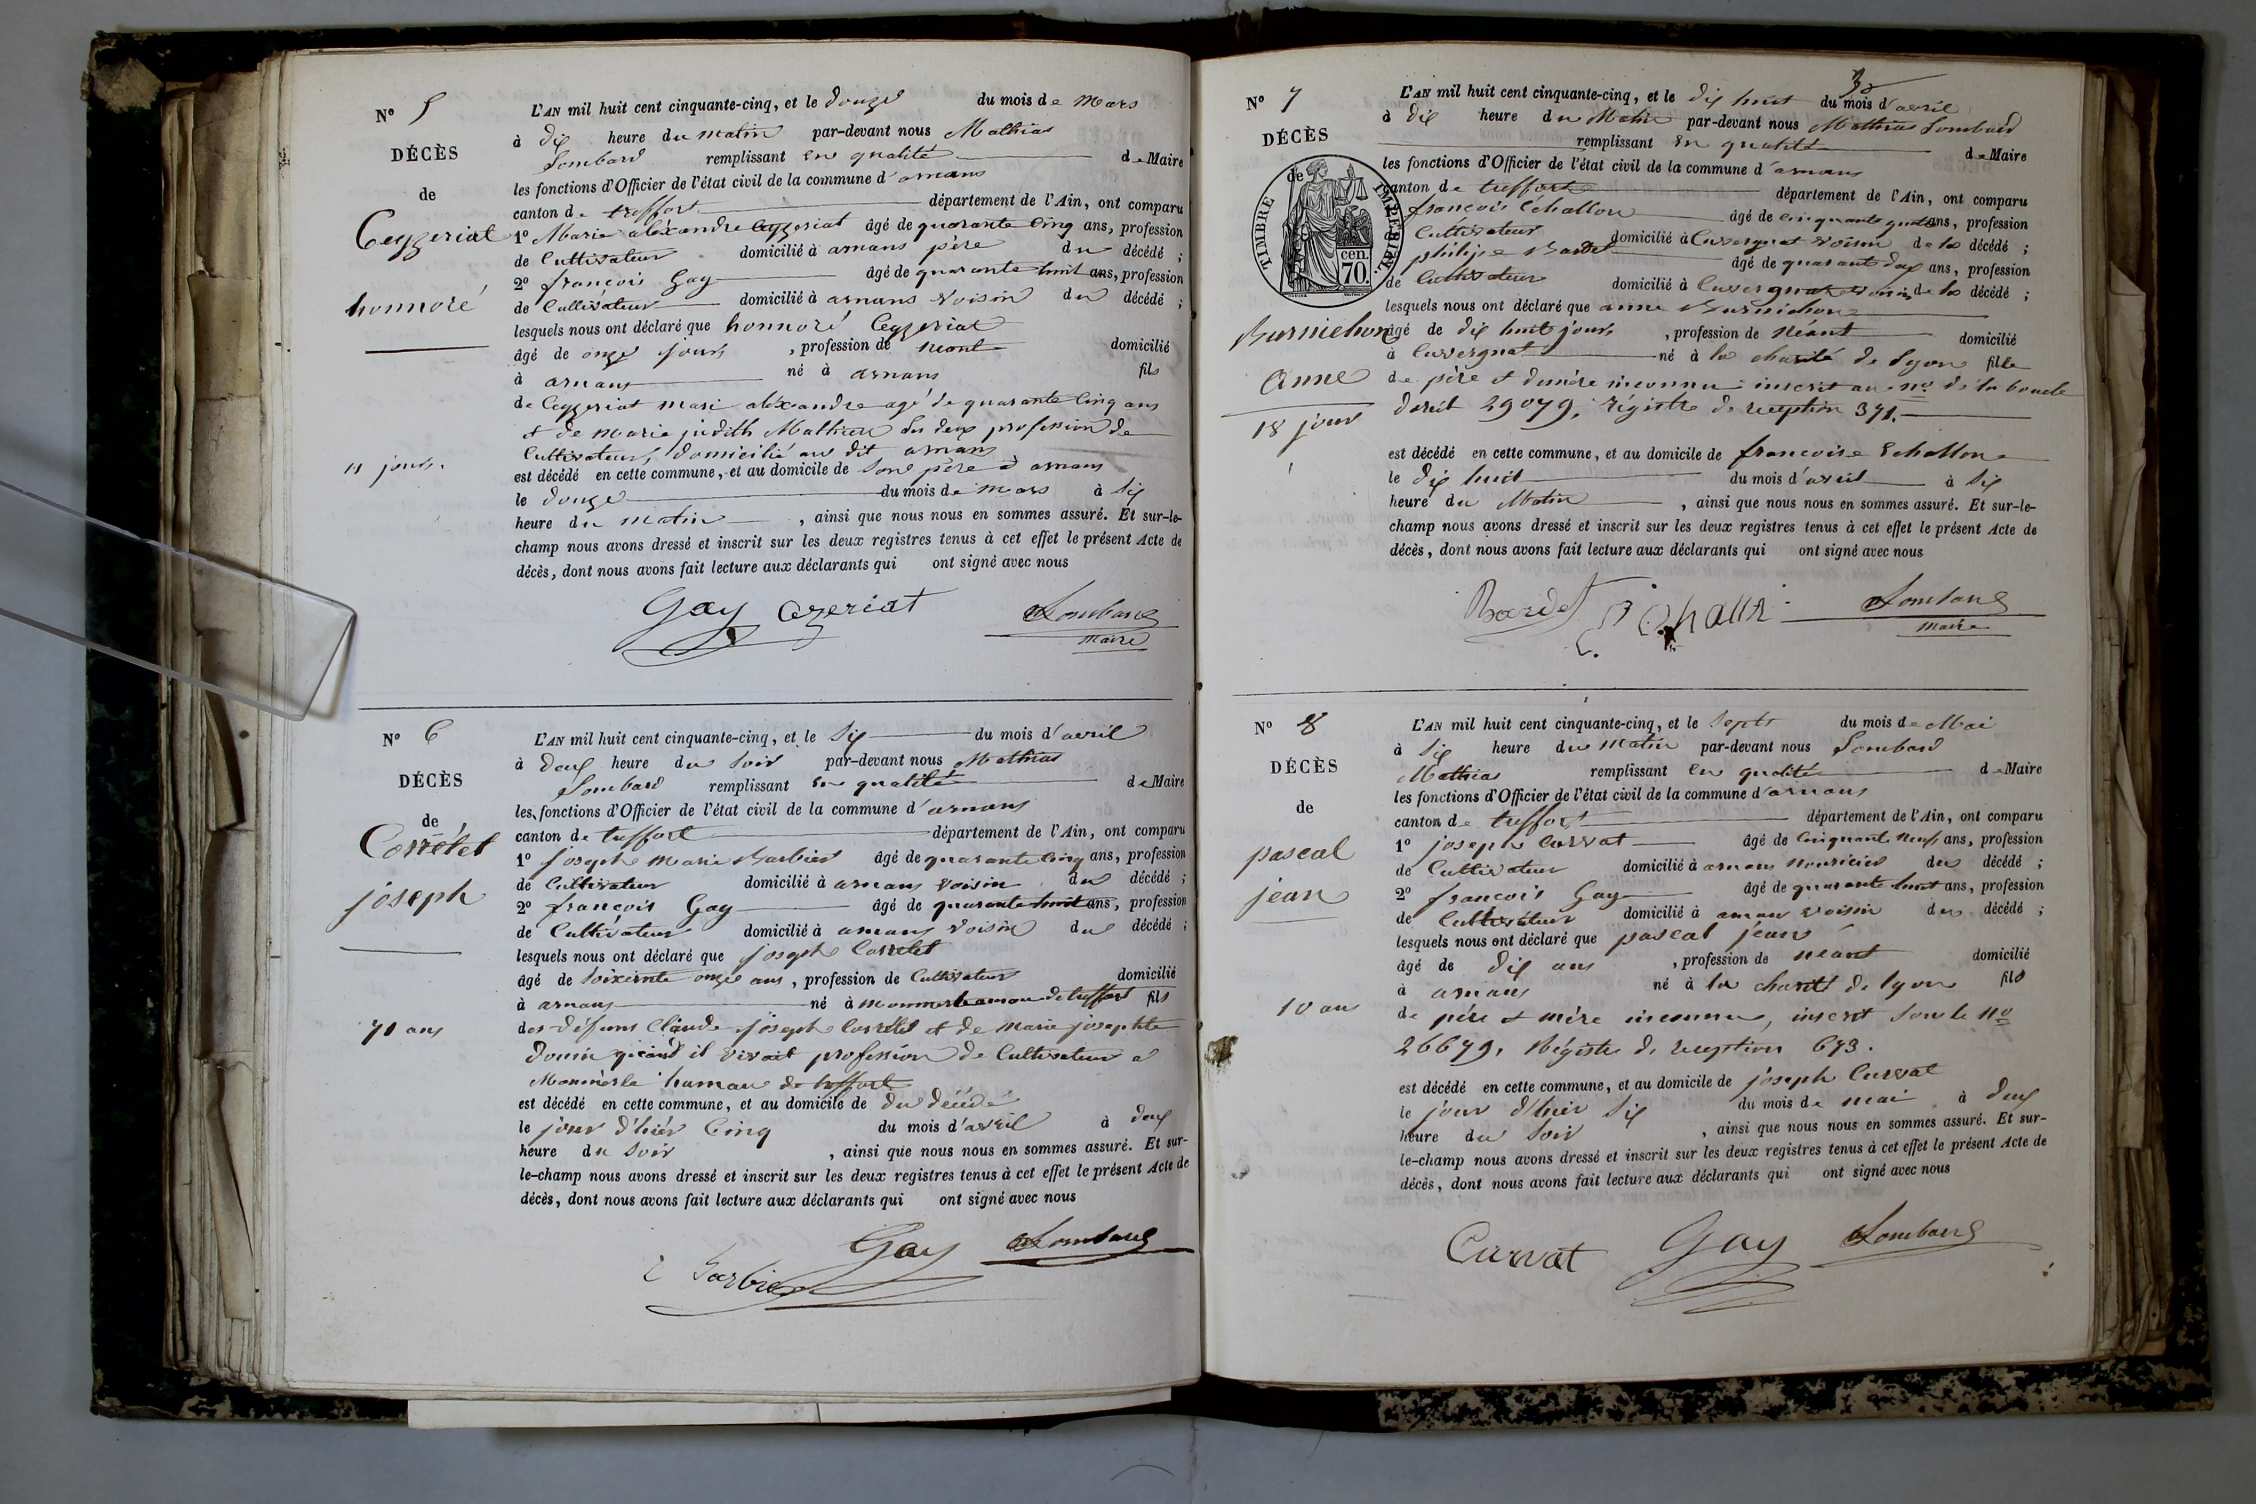 N° 5
DÉCÈS
de
Ceyzeriat
honnoré
11 jours.
L'AN mil huit cent cinquante-cinq, et le douze du mois de Mars
à dix heure du matin par-devant nous Mathias
Lombard remplissant en qualité de Maire
les fonctions d'Officier de l'état civil de la commune d'arnans
canton de treffort département de l'Ain, ont comparu
1° Marie alexandre Ceyzeriat âgé de quarante cinq ans, profession
de Cultivateur domicilié à arnans père du décédé ;
2° francois Gay âgé de quarante huit ans, profession
de Cultivateur domicilié à arnans voisin du décédé ;
lesquels nous ont déclaré que honnoré Ceyzeriat
âgé de onze jours , profession de néant domicilié
à arnans né à arnans fils
de Ceyzeriat mari aléxandre agé de quarante cinq ans
et de marie judith Mathieu les deux profession de
Cultivateur, domicilié au dit arnans
est décédé en cette commune, et au domicile de son père à arnans
le douze du mois de mars à six
heure du matin , ainsi que nous nous en sommes assuré. Et sur-le-
champ nous avons dressé et inscrit sur les deux registres tenus à cet effet le présent Acte de
décès, dont nous avons fait lecture aux déclarants qui ont signé avec nous
Gay Cezeriat Lombard
maire
N° 6
DÉCÈS
de
Corrétet
joseph
71 ans
L'AN mil huit cent cinquante-cinq, et le six du mois d'avril
à deux heure du soir par-devant nous Mathias
Lombard remplissant en qualité de Maire
les fonctions d'Officier de l'état civil de la commune d'arnans
canton de treffort département de l'Ain, ont comparu
1° joseph Marie Barbier âgé de quarante cinq ans, profession
de Cultivateur domicilié à arnans voisin du décédé ;
2° francois Gay âgé de quarante huit ans, profession
de Cultivateur domicilié à arnans voisin du décédé ;
lesquels nous ont déclaré que joseph Corretet
âgé de soixcente onze ans, profession de Cultivateur domicilié
à arnans né à de treffort fils
des défuns Claude joseph Corretet et de Marie josephte
quand il vivait profession de Cultivateur a
hamau de treffort
est décédé en cette commune, et au domicile de du décédé
le jour d'hiér Cinq du mois d'avril à deux
heure du soir , ainsi que nous nous en sommes assuré. Et sur-
le-champ nous avons dressé et inscrit sur les deux registres tenus à cet effet le présent Acte de
décès, dont nous avons fait lecture aux déclarants qui ont signé avec nous
Gay Lombard
Barbier
N° 7
DÉCÈS
de
TIMBRE IMPERIAL.
cen.
70.
Burnichon
Anne
18 jour
L'AN mil huit cent cinquante-cinq, et le dix huit du mois d'avril
à dix heure du Matin par-devant nous Mathias Lombard
remplissant en qualité de Maire
les fonctions d'Officier de l'état civil de la commune d'arnans
canton de treffort département de l'Ain, ont comparu
francois Echallon âgé de cinquante quatre ans, profession
Cultivateur domicilié à Cuvergnat voisin de la décédé ;
philipe Bardet âgé de quarante deux ans, profession
de Cultivateur domicilié à Cuvergnat voisin de la décédé ;
lesquels nous ont déclaré que anne Burnichon
âgé de dix huit jours , profession de Néant domicilié
à Cuvergnat né à la charité de lyon fille
de père et de mère inconnu inscrit au n° de la boucle
doreil 29079. régistre de reception 371.
est décédé en cette commune, et au domicile de francoise Echallon
le dix huit du mois d'avril à six
heure du Matin , ainsi que nous nous en sommes assuré. Et sur-le-
champ nous avons dressé et inscrit sur les deux registres tenus à cet effet le présent Acte de
décès, dont nous avons fait lecture aux déclarants qui ont signé avec nous
Bardet Lombard
maire
N° 8
DÉCÈS
de
pascal
jean
10 an
L'AN mil huit cent cinquante-cinq, et le sept du mois de Mai
à six heure du matin par-devant nous Lombard
Mathias remplissant en qualité de Maire
les fonctions d'Officier de l'état civil de la commune d'arnans
canton de treffort département de l'Ain, ont comparu
1° joseph Curvat âgé de Cinquante neuf ans, profession
de Cultivateur domicilié à arnans nouricier du décédé ;
2° francois Gay âgé de quarante huit ans, profession
de Cultivateur domicilié à arnans voisin du décédé ;
lesquels nous ont déclaré que pascal jean
âgé de dix ans , profession de néant domicilié
à arnans né à la charité de lyon fils
de pére et mére inconnu, inscrit sous le n°
26679. Régistre de reception 673.
est décédé en cette commune, et au domicile de joseph Curvat
le jour d'hier six du mois de mai à deux
heure du soir , ainsi que nous nous en sommes assuré. Et sur-
le-champ nous avons dressé et inscrit sur les deux registres tenus à cet effet le présent Acte de
décès, dont nous avons fait lecture aux déclarants qui ont signé avec nous
Curvat Gay Lombard